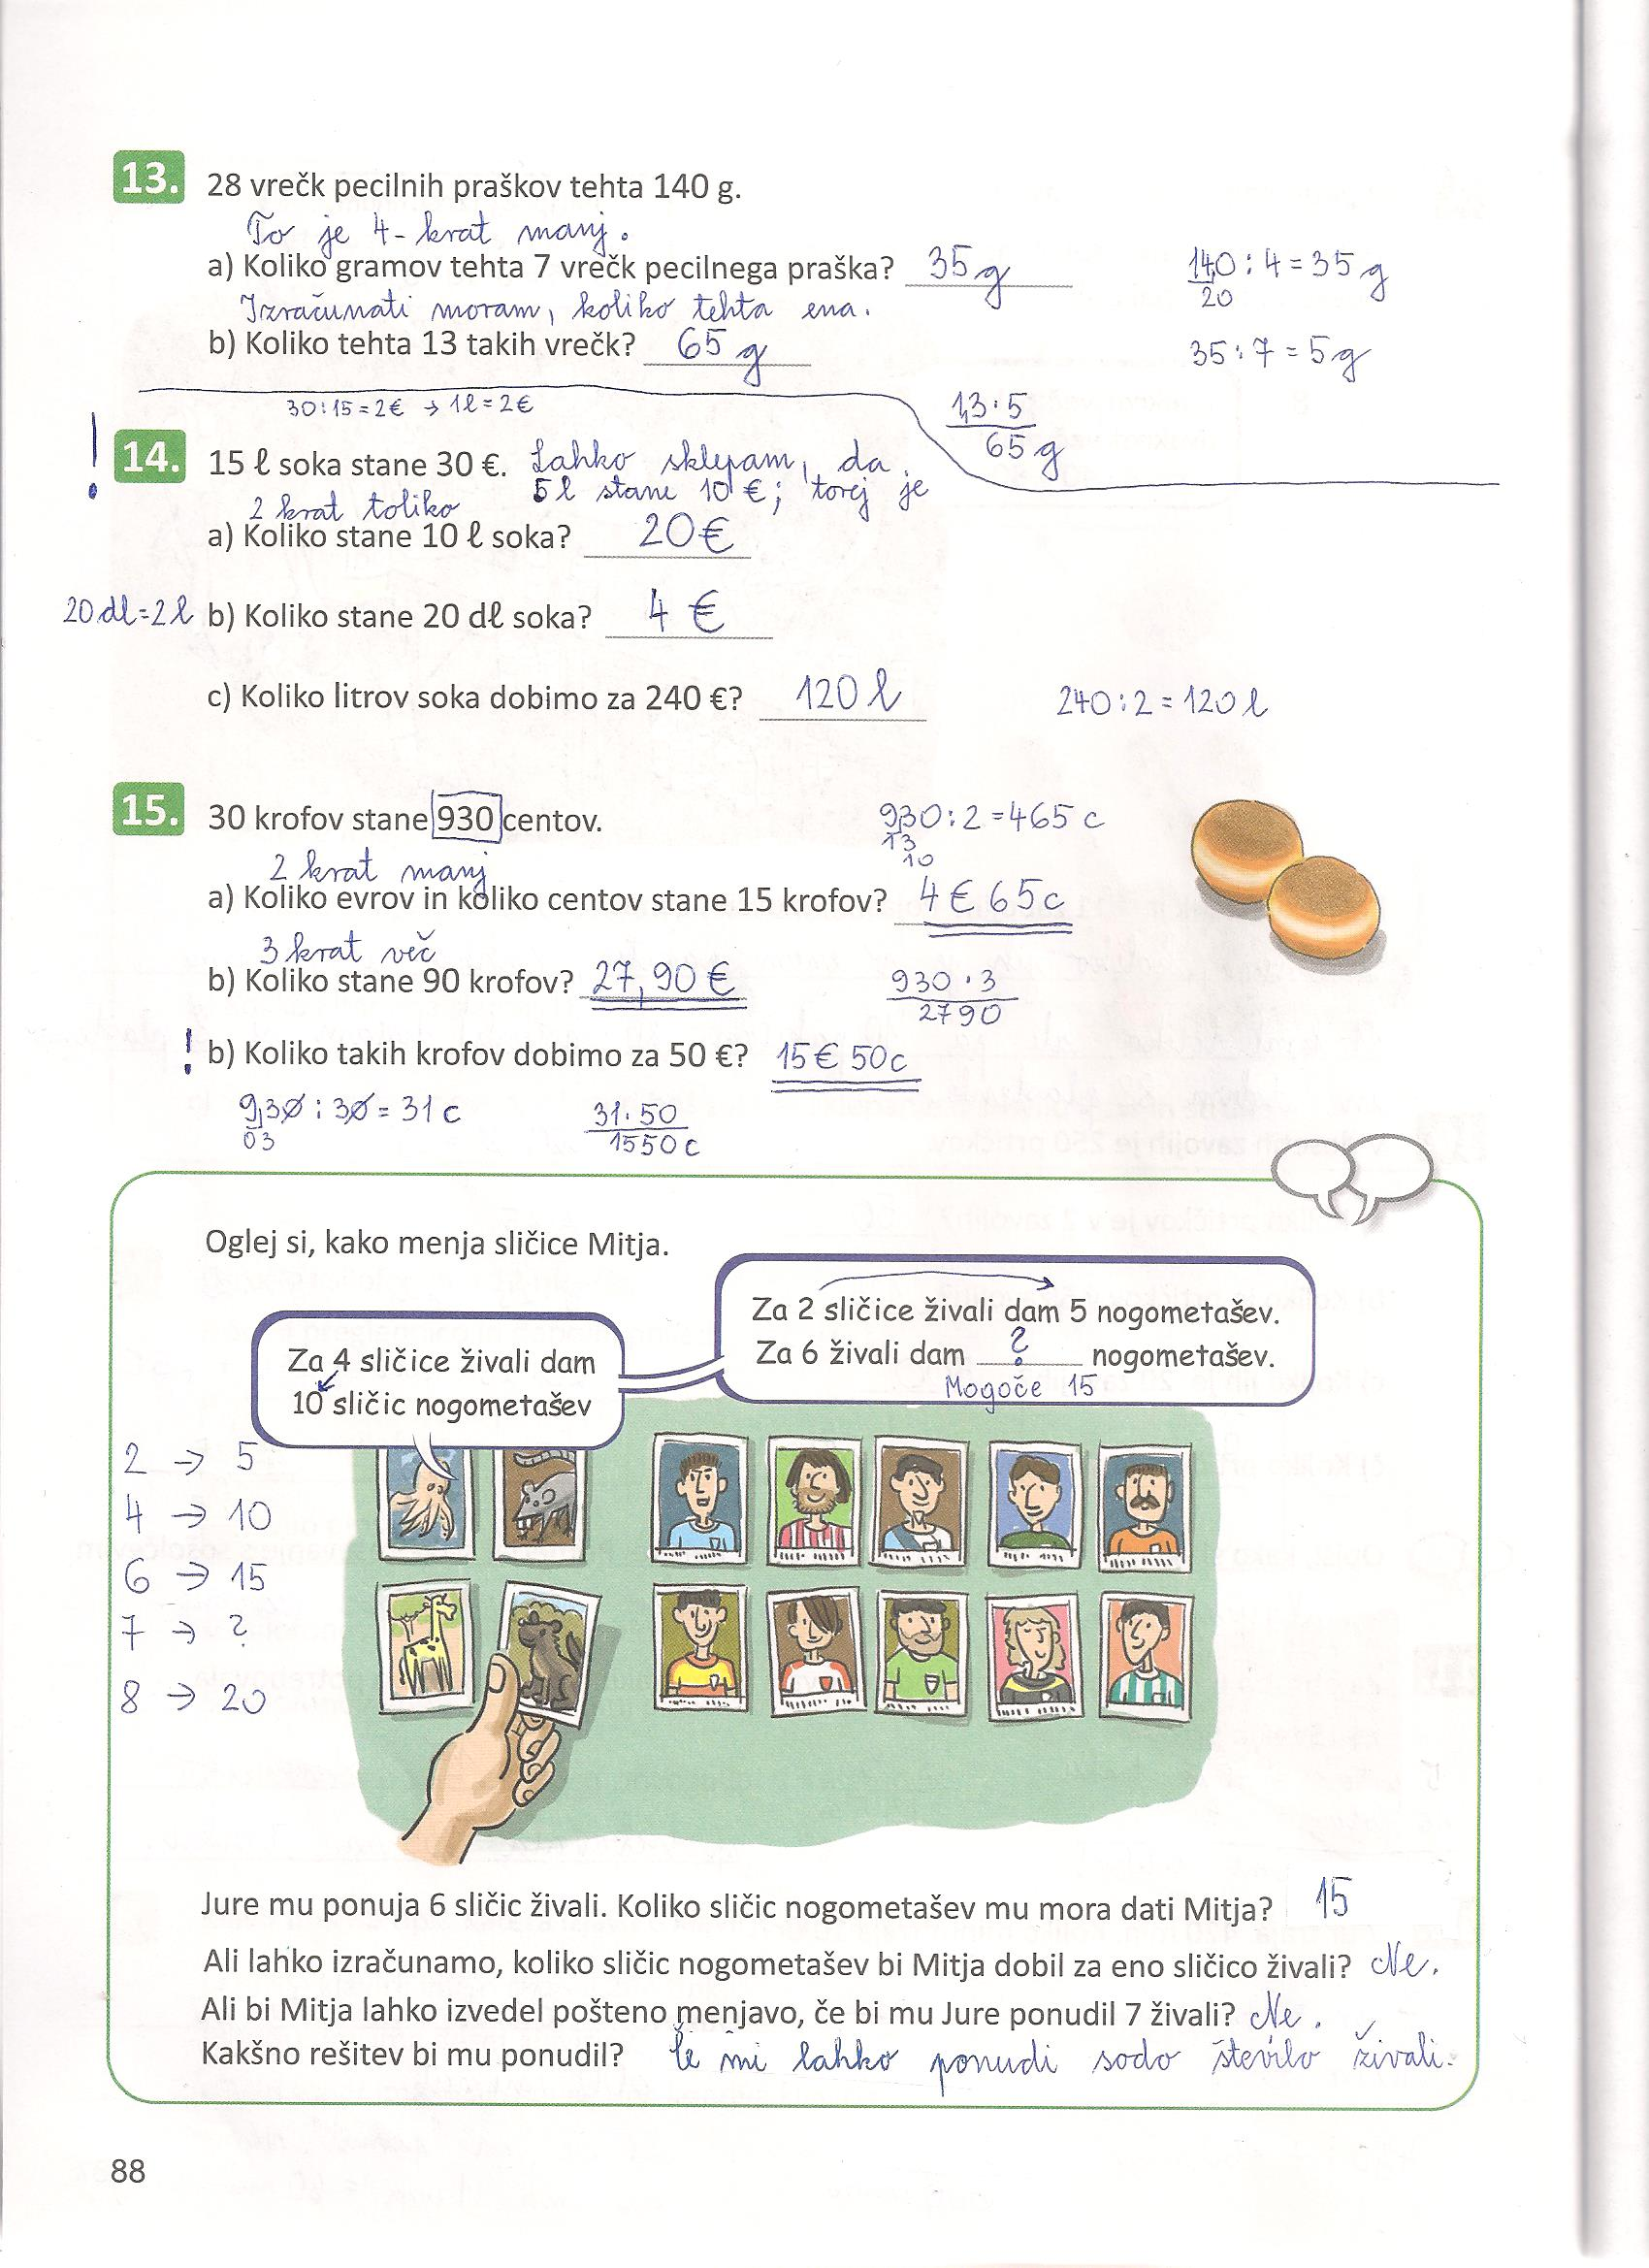 13. 28 vrečk pecilnih praškov tehta 140 g.
To je 4-krat manj.
a) Koliko gramov tehta 7 vrečk pecilnega praška? 35 g
140 : 4 = 35 g
20
Izračunati moram, koliko tehta ena.
b) Koliko tehta 13 takih vrečk? 65 g
35 : 7 = 5 g
13 · 5
65 g
30 : 15 = 2 € → 1 l = 2 €
!
14. 15 ℓ soka stane 30 €. Lahko sklepam, da
5 l stane 10 €; torej je
2 krat toliko
a) Koliko stane 10 ℓ soka? 20 €
20 dl = 2 l b) Koliko stane 20 dℓ soka? 4 €
c) Koliko litrov soka dobimo za 240 €? 120 l
240 : 2 = 120 l
15. 30 krofov stane 930 centov.
930 : 2 = 465 c
13
10
2 krat manj
a) Koliko evrov in koliko centov stane 15 krofov? 4 € 65 c
3 krat več
b) Koliko stane 90 krofov? 27,90 €
930 · 3
2790
! b) Koliko takih krofov dobimo za 50 €? 15 € 50 c
930 : 30 = 31 c
03
31 · 50
1550 c
Oglej si, kako menja sličice Mitja.
Za 4 sličice živali dam
10 sličic nogometašev
Za 2 sličice živali dam 5 nogometašev.
Za 6 živali dam ? nogometašev.
Mogoče 15
2 → 5
4 → 10
6 → 15
7 → ?
8 → 20
Jure mu ponuja 6 sličic živali. Koliko sličic nogometašev mu mora dati Mitja? 15
Ali lahko izračunamo, koliko sličic nogometašev bi Mitja dobil za eno sličico živali? Ne.
Ali bi Mitja lahko izvedel pošteno menjavo, če bi mu Jure ponudil 7 živali? Ne.
Kakšno rešitev bi mu ponudil? Če mi lahko ponudi sodo število živali.
88